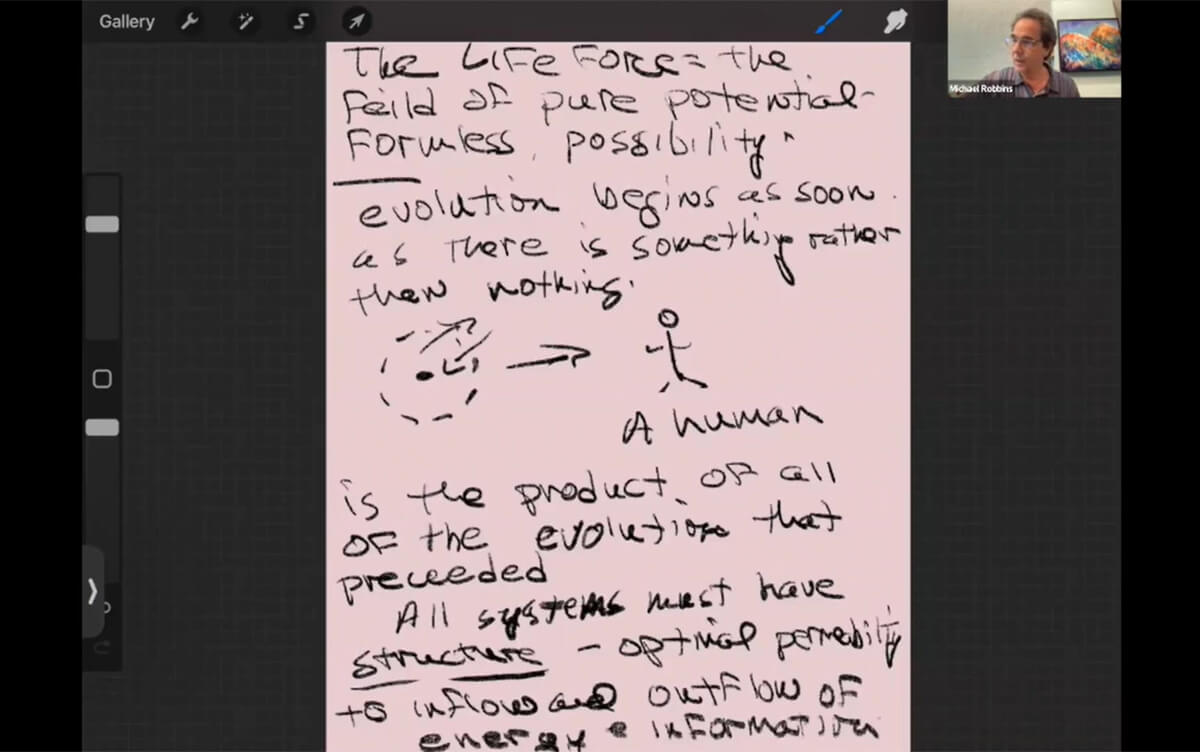 Gallery
Michael Robbins
The LIFE Force = the
Feild OF pure potential-
Formless possibility.
evolution begins as soon
as There is something rather
then nothing.
A human
is the product OF all
OF the evolution that
preceeded
All systems must have
structure - optimal permeability
to inflow and outflow OF
energy & information